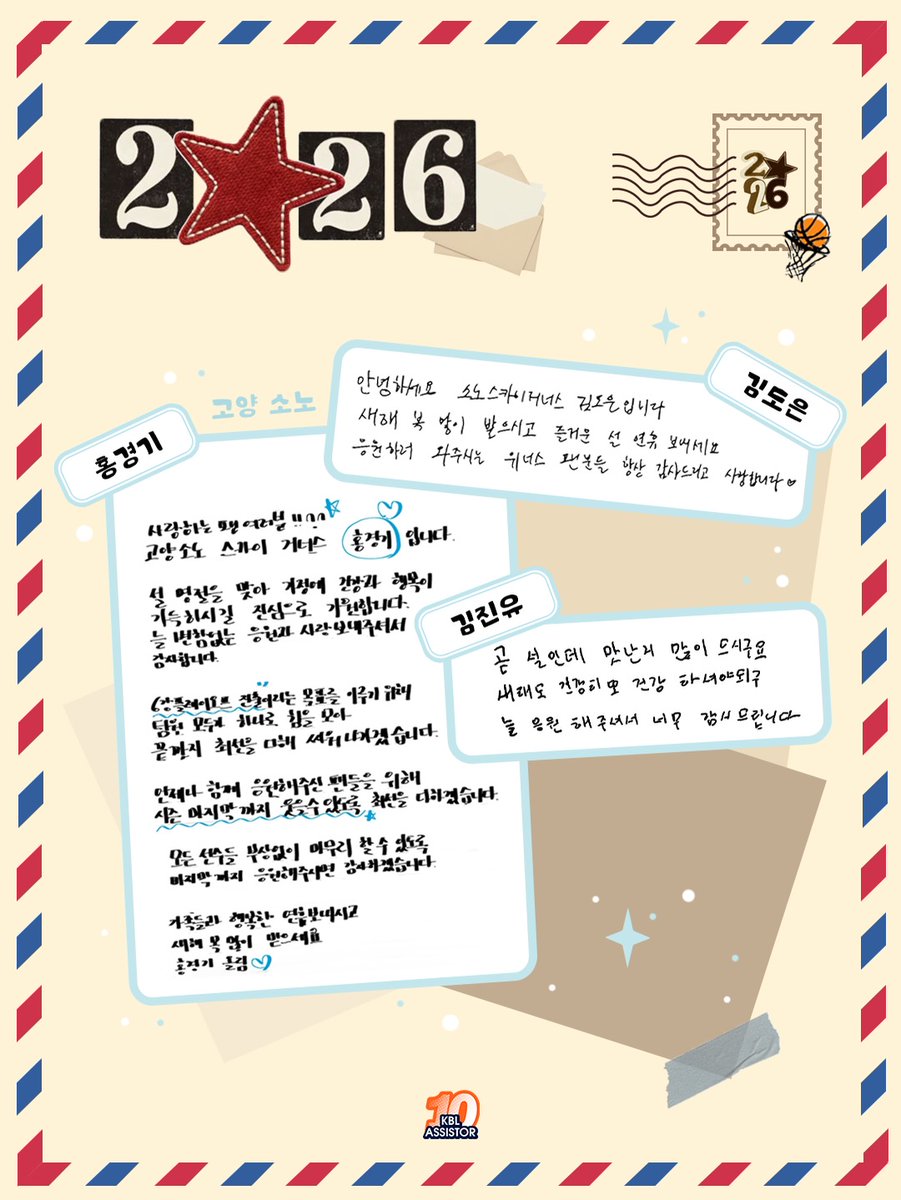 2★26
2★26
고양 소노
김도은
안녕하세요 소노스카이거너스 김도은입니다
새해 복 많이 받으시고 즐거운 설 연휴 보내세요
응원하러 와주시는 위너스 팬분들 항상 감사드리고 사랑합니다♡
홍경기
사랑하는 팬 여러분 !!^^
고양 소노 스카이 거너스 홍경기 입니다.
설 명절을 맞아 가정에 건강과 행복이
가득하시길 진심으로 기원합니다.
늘 변함없는 응원과 사랑 보내주셔서
감사합니다.
6강 플레이오프 진출이라는 목표를 이루기 위해
팀원 모두가 하나로 힘을 모아
끝까지 최선을 다해 싸워 나가겠습니다.
언제나 함께 응원해주신 팬들을 위해
시즌 마지막까지 웃을 수 있도록 최선을 다하겠습니다.
모든 선수들 부상없이 마무리 할 수 있도록
마지막까지 응원해주시면 감사하겠습니다.
가족들과 행복한 연휴보내시고
새해 복 많이 받으세요
홍경기 올림♡
김진유
곧 설인데 맛난거 많이 드시구요
새해도 건강히 또 건강 하셔야되구
늘 응원 해주셔서 너무 감사드립니다
10
KBL
ASSISTOR